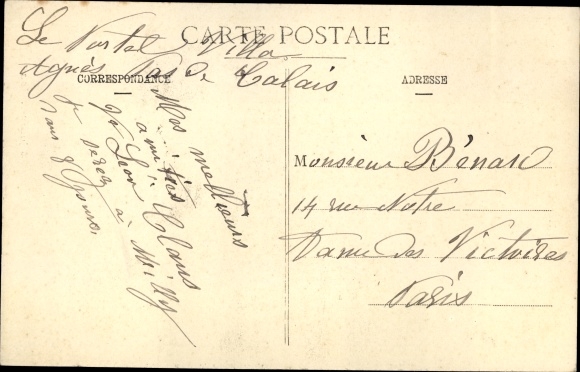 CARTE POSTALE
Le Portel Villa
Agnès Pas de Calais
CORRESPONDANCE
Mes meilleurs
amitiés
Léon Claus
je serez à Milly
dans 8 jours
ADRESSE
Monsieur Bénard
14 rue Notre
Dame des Victoires
Paris